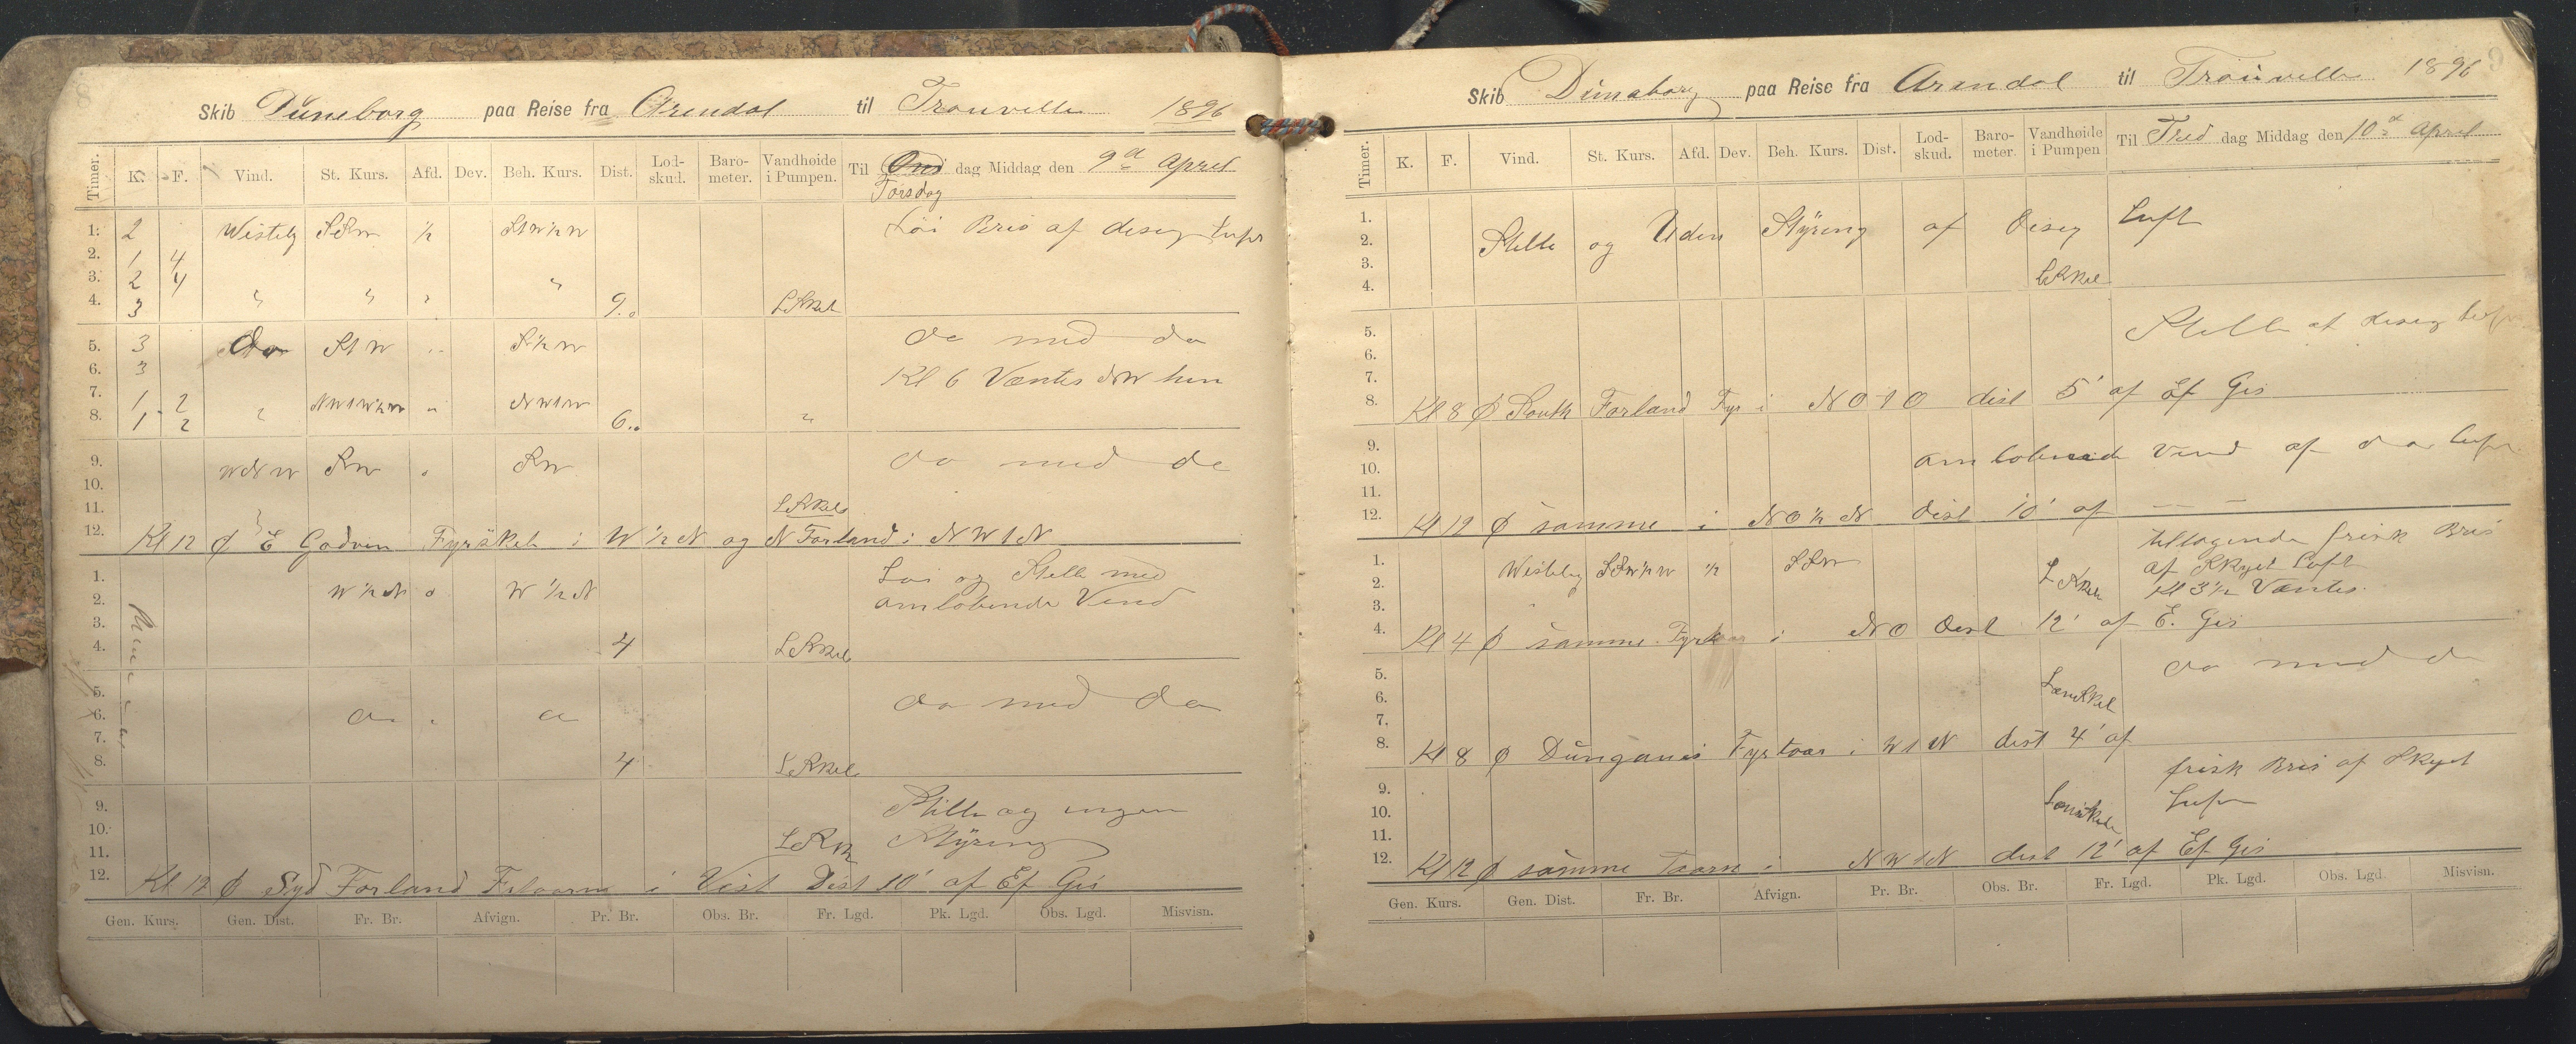 8
Skib Düneborg paa Reise fra Arendal til Trouville 1896
Timer. K. F. Vind. St. Kurs. Afd. Dev. Beh. Kurs. Dist. Lod-skud. Baro-meter. Vandhøide i Pumpen. Til Ons dag Middag den 9d April
Torsdag
1. 2 Westelg SSW ½ S1W½W Løi Bris af diseg Luft
2. 1 4
3. 2 4
4. 3 " " " " 9.. LSKel
5. 3 do S1W " S½W do med do
6. 3 Kl 6 Væntes NW hen
7. 1 2 NW1W½W " NW1W
8. 1 2 " 6.. "
9. WNW SW " SW do med do
10.
11. LSKel
12. Kl 12 ∅ E Godvin Fyrskib i W½N og N Forland i NW1N
1. W½N o W½N Løi og Stille med
2. omløbende Vind
3.
4. 4 LSKel
5. do med do
6. do " do
7.
8. 4 LSKel
9. Stille og ingen
10. Styring
11. LSK
12. Kl 12 ∅ Syd Forland i Vest Dist 10' af Ef Gis
Gen. Kurs. Gen. Dist. Fr. Br. Afvign. Pr. Br. Obs. Br. Fr. Lgd. Pk. Lgd. Obs. Lgd. Misvisn.
9
Skib Dünaborg paa Reise fra Arendal til Trouville 1896
Timer. K. F. Vind. St. Kurs. Afd. Dev. Beh. Kurs. Dist. Lod-skud. Baro-meter. Vandhøide i Pumpen Til Fred dag Middag den 10d April
1. Luft
2. Stille og Uden Styring af Diseg
3.
4. LSKel
5. Stille af diseg Luft
6.
7.
8. Kl 8 ∅ South Forland Fyr i NO1O dist 5' af Ef Gis
9.
10. omløbende Vind af do Luft
11.
12. Kl 12 ∅ samme i NO½N dist 10' af — —
tiltagende frisk Bris
1. Westelg SSW½W ½ SSW af Skyet Luft
2. LSKel Kl 3½ Væntes
3.
4. Kl 4 ∅ samme i NO Dist 12' af E. Gis
5. do med do
6. LænsKel
7.
8. Kl 8 ∅ Dünganes Fyrtaar i W1N dist 4' af
frisk Bris af Skyet
9.
10. LænsKel Luft
11.
12. Kl 12 ∅ samme Taarn i NW1N dist 12' af Ef Gis
Gen. Kurs. Gen. Dist. Fr. Br. Afvign. Pr. Br. Obs. Br. Fr. Lgd. Pk. Lgd. Obs. Lgd. Misvisn.